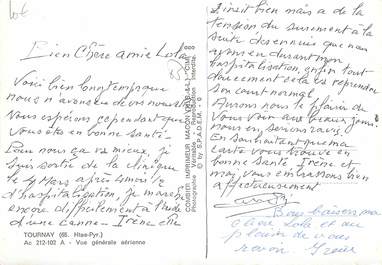 Bien Chère amie Lola
Voici bien longtemps que
nous n'avons eu de vos nouvelles
Nous espérons cependant que
vous êtes en bonne santé -
Pour nous ça va mieux, je
suis sortie de la clinique
le 4 Mars après 4 mois 1/2
d'hospitalisation, je marche
encore difficilement à l'aide
d'une canne - Irène est
TOURNAY (65. Htes-Pyr.)
Ac 212-102 A - Vue générale aérienne
COMBIER IMPRIMEUR MACON (S.-&-L.) "CIM"
Photographie Véritable - Reproduction Interdite
© by S.P.A.D.E.M. - 9
aussi bien mais a de la
tension du surement à la
suite des ennuis que nous
avons eu durant mon
hospitalisation, enfin tout
doucement cela va reprendre
son court normal.
Aurons nous le plaisir de
vous voir aux beaux jours
nous en serions ravis
En souhaitant que ma
carte vous trouve en
bonne santé Irène et
moi, vous embrassons bien
affectueusement
Bons baisers ma
chère Lola et au
plaisir de vous
revoir. Irène